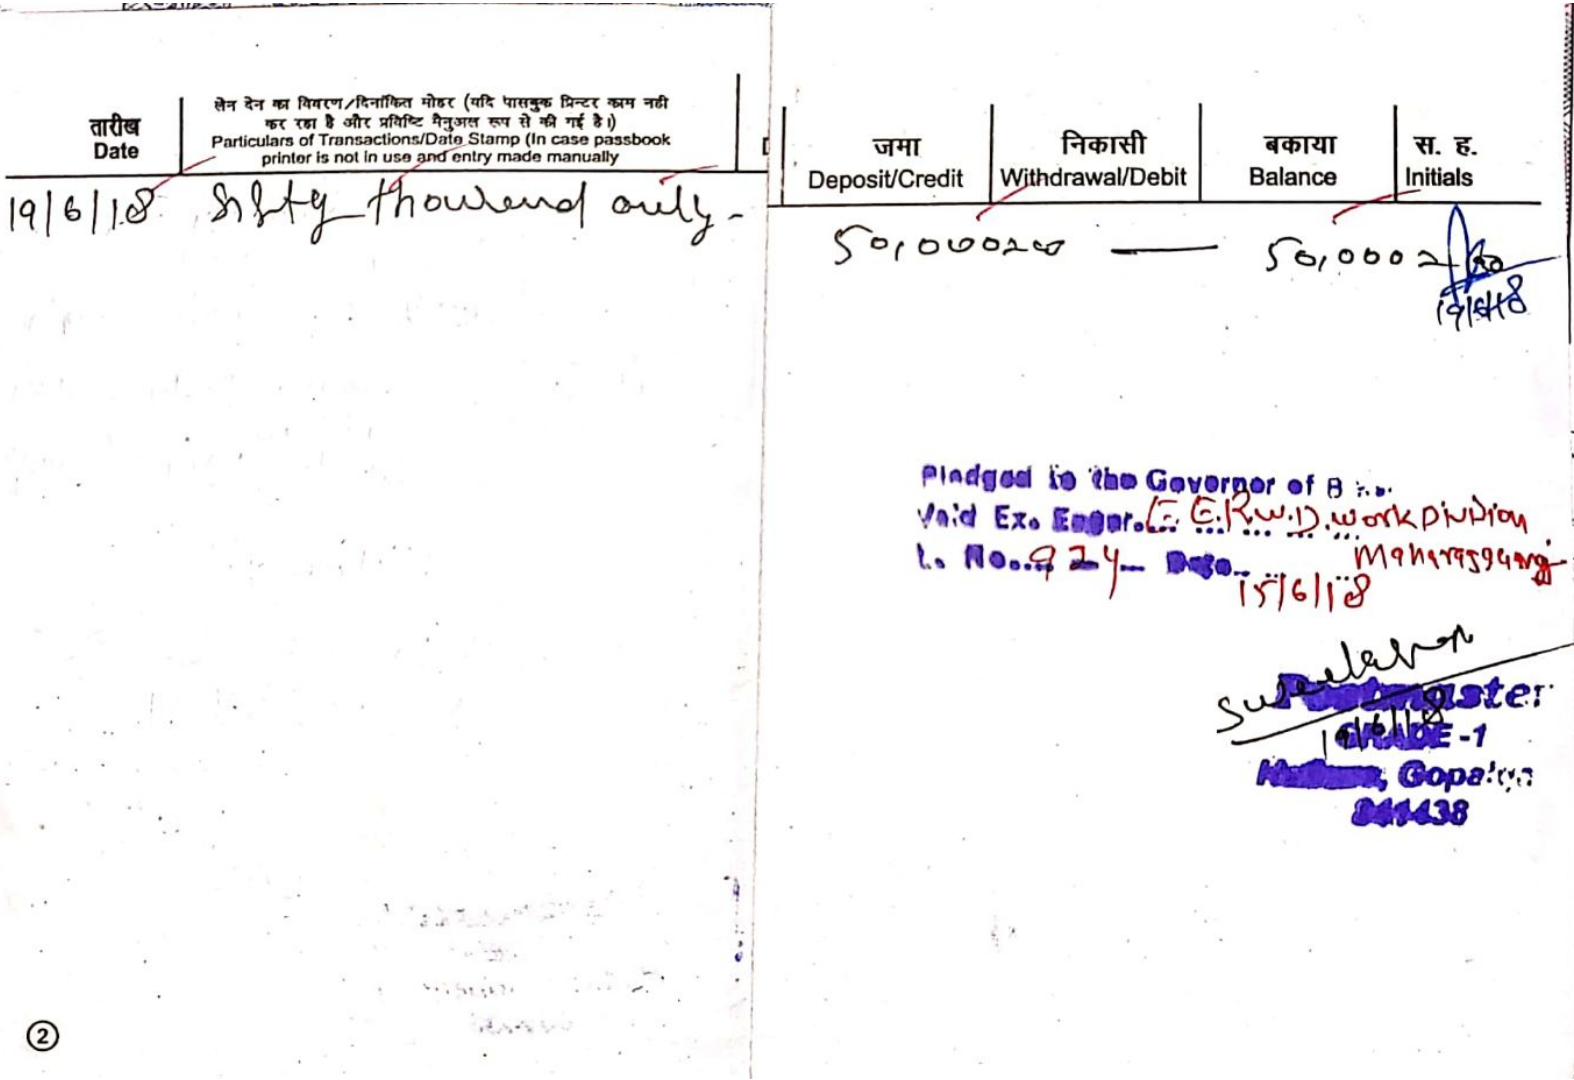 तारीख
Date
लेन देन का विवरण/दिनांकित मोहर (यदि पासबुक प्रिन्टर काम नही
कर रहा है और प्रविष्टि मैनुअल रूप से की गई है।)
Particulars of Transactions/Date Stamp (In case passbook
printer is not in use and entry made manually
जमा
Deposit/Credit
निकासी
Withdrawal/Debit
बकाया
Balance
स. ह.
Initials
19/6/18 fifty thousand only-
50,000 — 50,000
19/6/18
Pledged to the Governor of B
Vaid Ex. Engnr. E.E.R.W.D. work Division
Maharajganj
L. No. 924 Date
15/6/18
Postmaster
19/6/18
GRADE -1
Gopalganj
841438
2